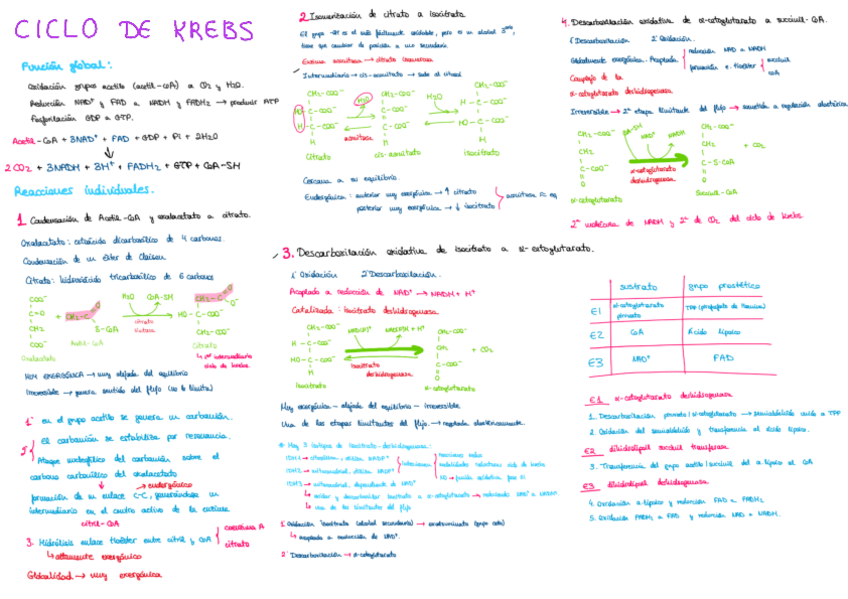 CICLO DE KREBS
Función global:
Oxidación grupos acetilo (acetil-CoA) a CO2 y H2O.
Reducción NAD+ y FAD a NADH y FADH2 → producir ATP
Fosforilación GDP a GTP.
Acetil-CoA + 3NAD+ + FAD + GDP + Pi + 2H2O
↓
2CO2 + 3NADH + 3H+ + FADH2 + GTP + CoA-SH
Reacciones individuales.
1 Condensación de Acetil-CoA y oxalacetato a citrato.
Oxalacetato: cetoácido dicarboxílico de 4 carbonos.
Condensación de un éster de Claisen
Citrato: hidroxiácido tricarboxílico de 6 carbonos
H2O CoA-SH
citrato
Oxalacetato Acetil-CoA Citrato
1er intermediario
ciclo de krebs
MUY EXERGÓNICA → muy alejada del equilibrio
Irreversible → genera sentido del flujo (no lo limita)
1º en el grupo acetilo se genera un carbanión.
2º El carbanión se estabiliza por resonancia.
Ataque nucleofílico del carbanión sobre el
carbono carbonílico del oxalacetato
→ endergónico
formación de un enlace C-C, generándose un
intermediario en el centro activo de la enzima
citril-CoA
3. Hidrólisis enlace tioéster entre citril y CoA
coenzima A
citrato
↳ altamente exergónico
Globalidad → muy exergónica
2 Isomerización de citrato a isocitrato
El grupo -OH es el
tiene que cambiar de posición a uno secundario
Enzima aconitasa → citrato isomerasa
Intermediario → cis-aconitato →
H2O H2O
aconitasa
Citrato cis-aconitato isocitrato
Cercana a su equilibrio.
Endergónica: anterior muy exergónica → ↑ citrato
posterior muy exergónica → ↓ isocitrato
3. Descarboxilación oxidativa de isocitrato a α-cetoglutarato.
1º Oxidación 2º Descarboxilación.
Acoplada a reducción de NAD+ → NADH + H+
Catalizada: isocitrato deshidrogenasa
isocitrato
deshidrogenasa
+ CO2
isocitrato α-cetoglutarato
Muy exergónica - alejada del equilibrio - irreversible.
Una de las etapas limitantes del flujo → regulada alostéricamente.
Hay 3 isotipos de isocitrato-deshidrogenasa:
IDH1 → citosólica, utiliza NADP+
IDH2 → mitocondrial, utiliza NADP+
IDH3 → mitocondrial, dependiente de NAD+
↳ oxidar y descarboxilar isocitrato a α-cetoglutarato → reduciendo NAD+ a NADH.
↳ una de las limitantes del flujo
1º Oxidación (isocitrato (alcohol secundario) → (grupo ceto)
↳ acoplada a reducción de NAD+.
2º Descarboxilación → α-cetoglutarato
4. Descarboxilación oxidativa de α-cetoglutarato a succinil-CoA.
1º Descarboxilación 2º Oxidación.
Globalmente exergónica. Acoplada
reducción NAD a NADH
formación e. tioéster
succinil
CoA
Complejo de la
α-cetoglutarato deshidrogenasa
Irreversible → 2ª etapa limitante del flujo → sometida a regulación alostérica
CoA-SH NAD+ NADH
α-cetoglutarato
deshidrogenasa
+ CO2
α-cetoglutarato Succinil-CoA
2ª molécula de NADH y 2ª de CO2 del ciclo de krebs
sustrato grupo prostético
E1 α-cetoglutarato
piruvato
E2 CoA Ácido lipoico
E3 NAD+ FAD
E1 α-cetoglutarato deshidrogenasa
1. Descarboxilación piruvato/α-cetoglutarato → semialdehído unido a TPP
2. Oxidación del semialdehído y transferencia al ácido lipoico.
E2 dihidrolipoil succinil transferasa
3. Transferencia del grupo acetilo/succinil del a. lipoico al CoA
E3 dihidrolipoil deshidrogenasa
4. Oxidación a. lipoico y reducción FAD a FADH2
5. Oxidación FADH2 a FAD y reducción NAD a NADH.